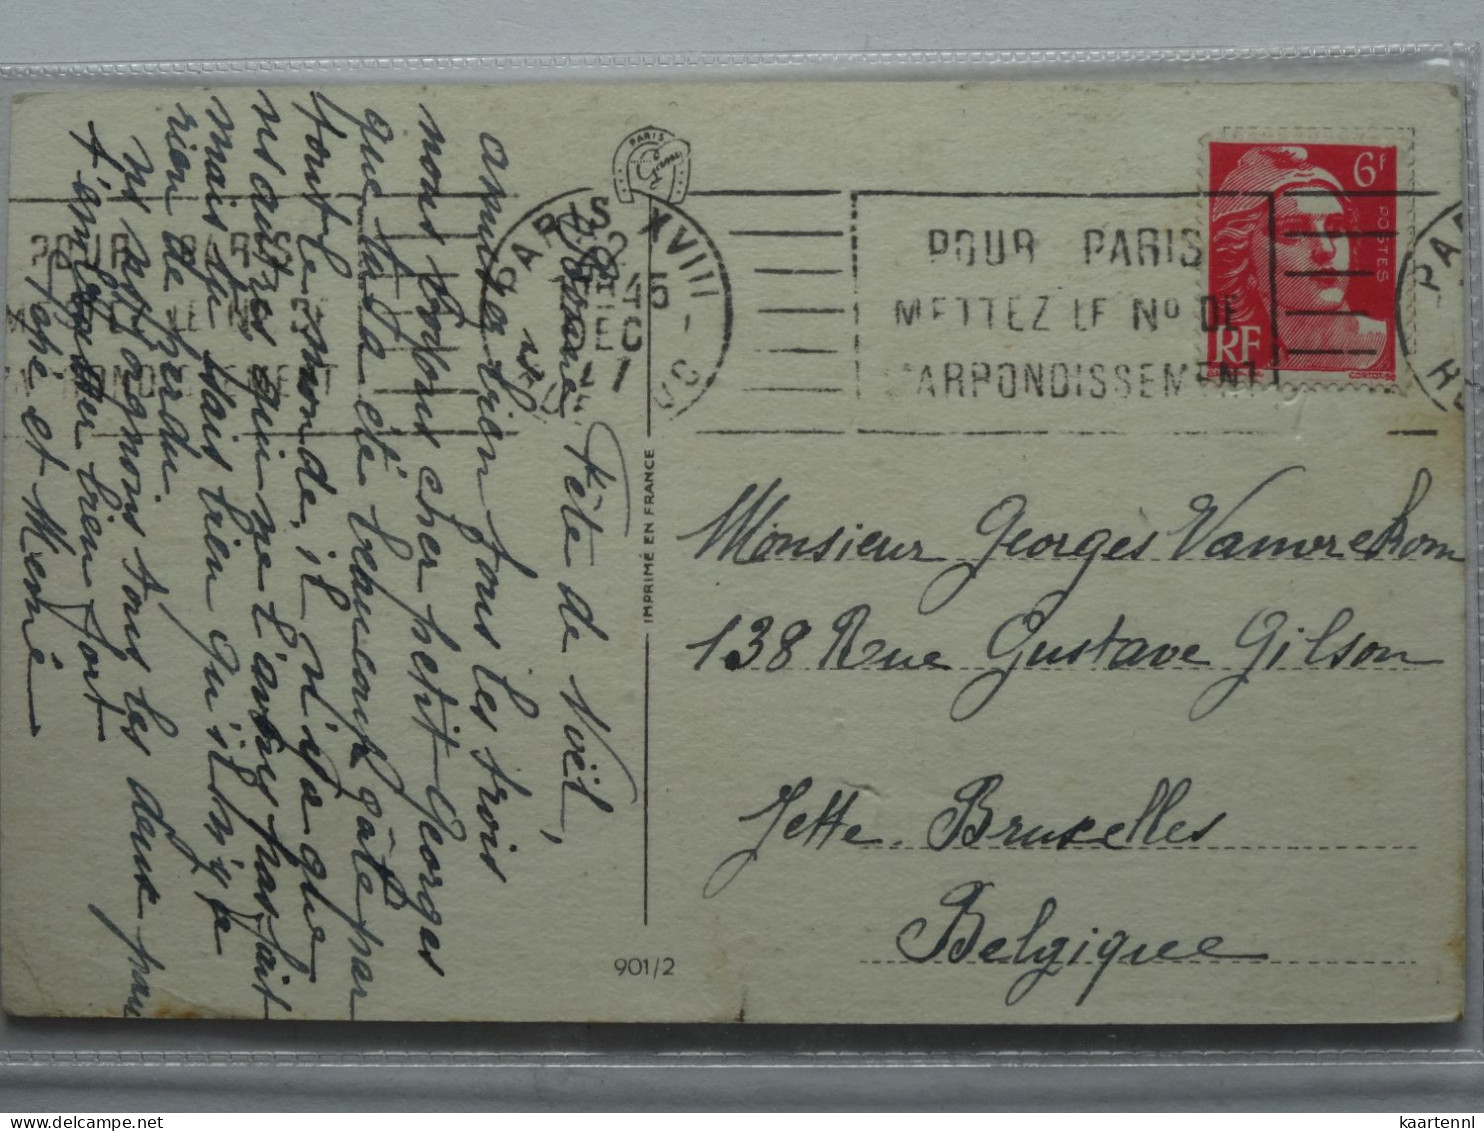 Bonne Fête de Noël,
amusez bien tous les trois
nous savons cher petit Georges
que tu a été beaucoup gâté par
tout le monde, il n'y a que
ns autres qui ne l'avons pas fait
mais tu sais bien qu'il n'y a
rien de perdu
ns soignons tous les deux pour
t'embrasser bien fort
et Mémé
PARIS
PARIS XVIII
45
DEC
POUR PARIS
METTEZ LE No DE
ARRONDISSEMENT
6F
POSTES
RF
IMPRIMÉ EN FRANCE
901/2
Monsieur Georges Vanvrekom
138 Rue Gustave Gilson
Jette. Bruxelles
Belgique
kaartennl